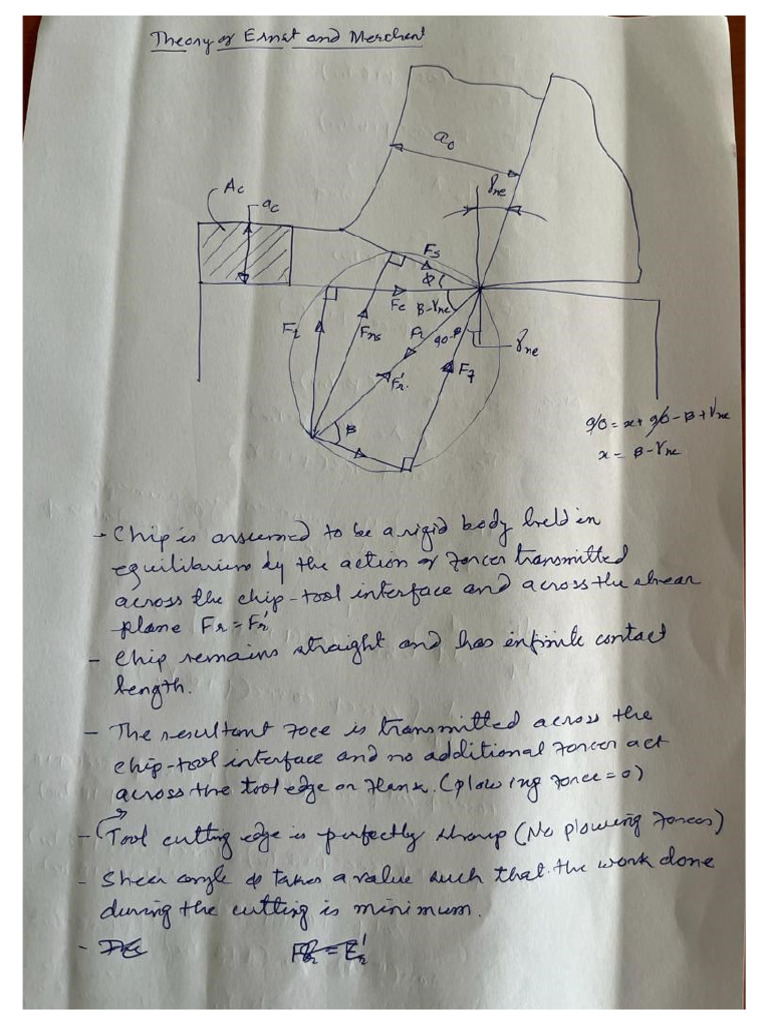 Theory of Ernst and Merchant
a₀
γne
Ac
ac
Fs
φ
Fc
β-γne
Ft
Fns
Fr
90-β
γne
Fr'
Ff
β
90 = x + 90 - β + γne
x = β - γne
- Chip is assumed to be a rigid body held in
equilibrium by the action of forces transmitted
across the chip-tool interface and across the shear
plane Fr = Fr'
- Chip remains straight and has infinite contact
length.
- The resultant foce is transmitted across the
chip-tool interface and no additional forces act
across the tool edge or flank. (plowing force = 0)
- Tool cutting edge is perfectly sharp (No plowing forces)
- Shear angle φ takes a value such that the work done
during the cutting is minimum.
- Fr = Fr'